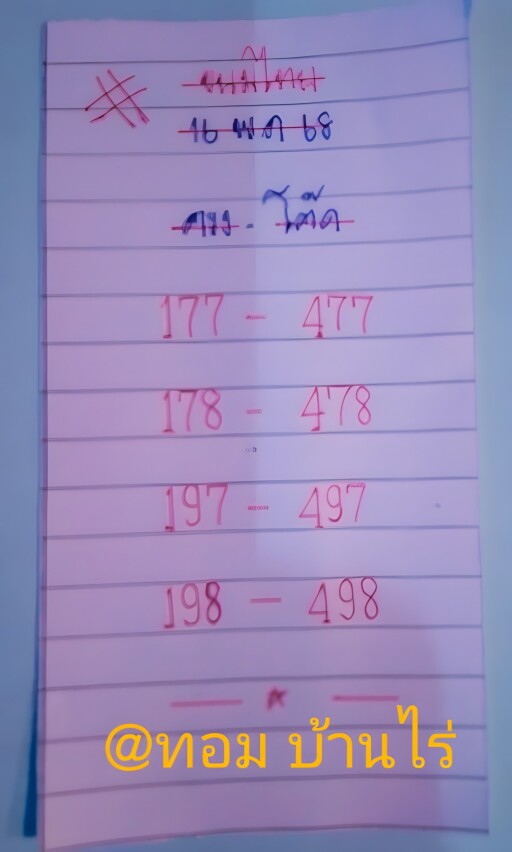 16 พค 68
ตรง - โต๊ด
177 - 477
178 - 478
197 - 497
198 - 498
@ทอม บ้านไร่